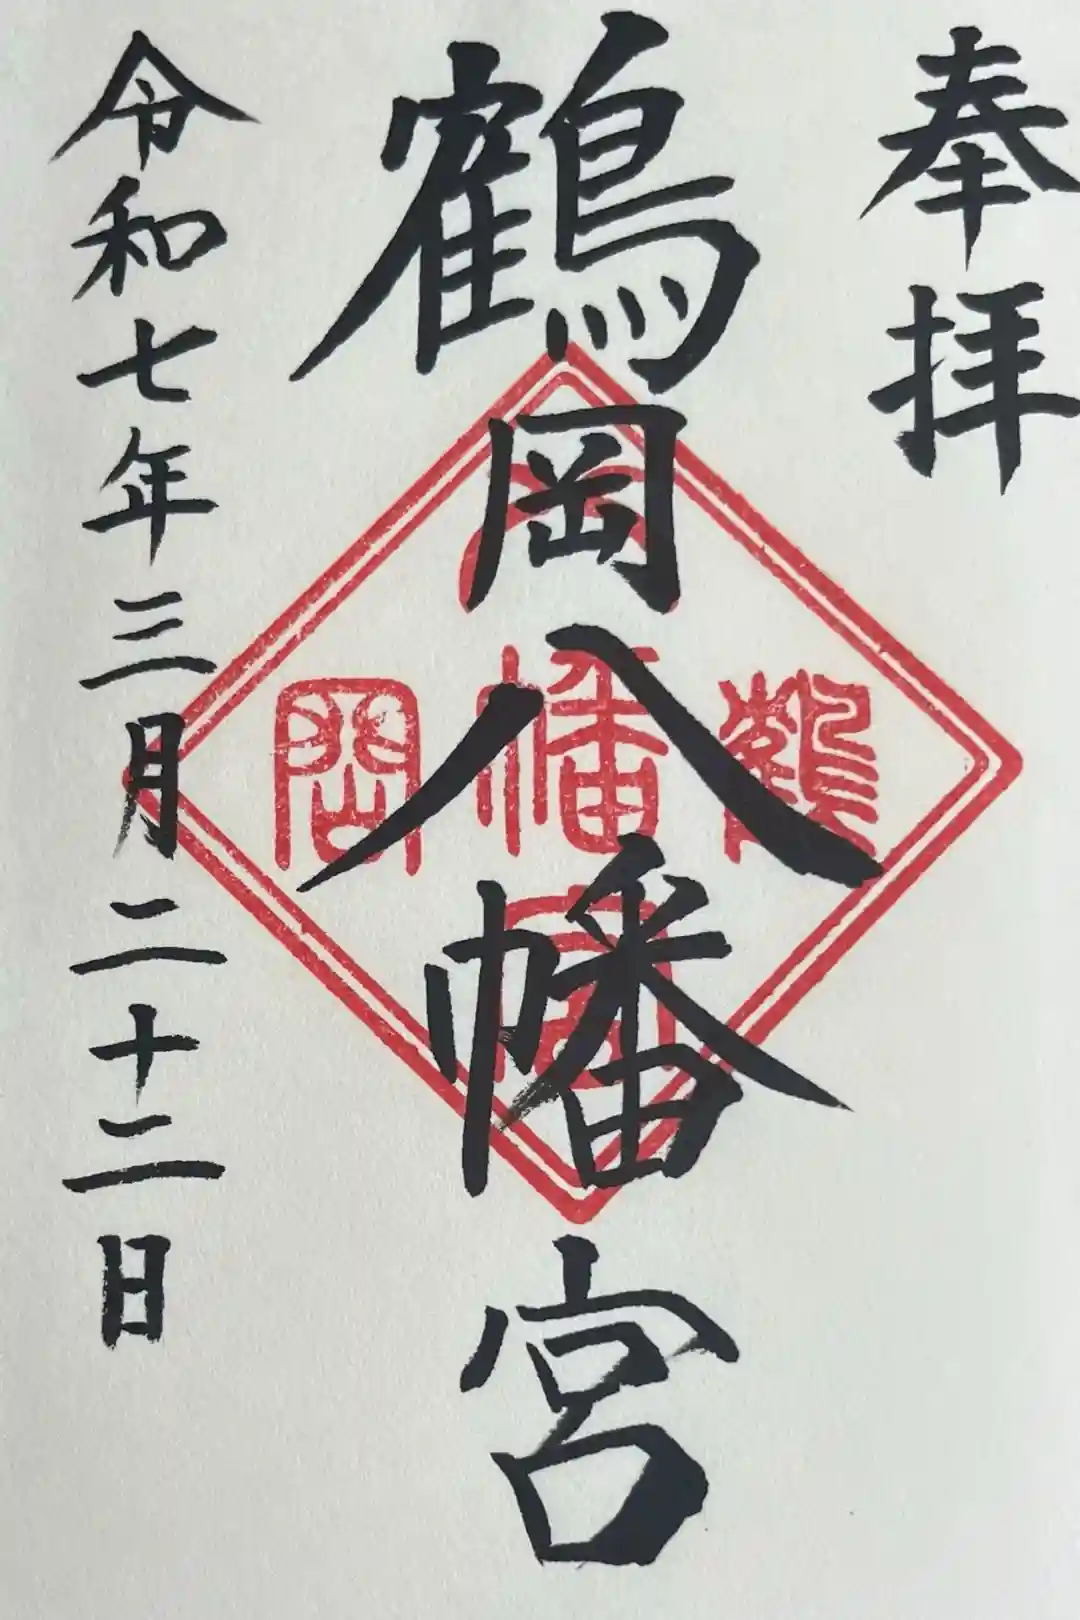 奉拝
鶴岡八幡宮
令和七年三月二十二日
鶴岡八幡宮